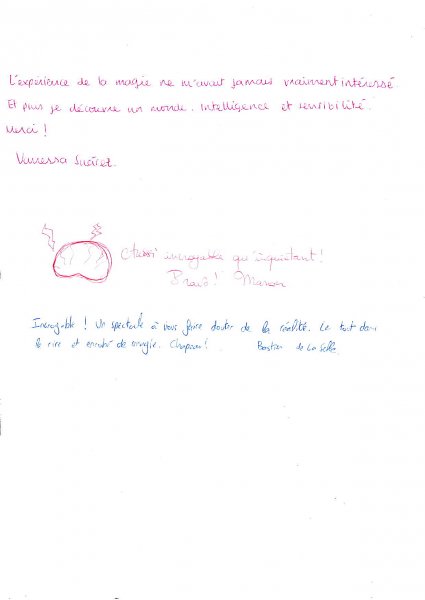 L'expérience de la magie ne m'avait jamais vraiment intéressé.
Et puis je découvre un monde. Intelligence et sensibilité.
Merci !
Vanessa Suaret.
Aussi incroyable qu'inquiétant !
Bravo ! Manon
Incroyable ! Un spectacle à vous faire douter de la réalité. Le tout dans
le rire et enrobé de magie. Chapeau ! Bastien de La Salle